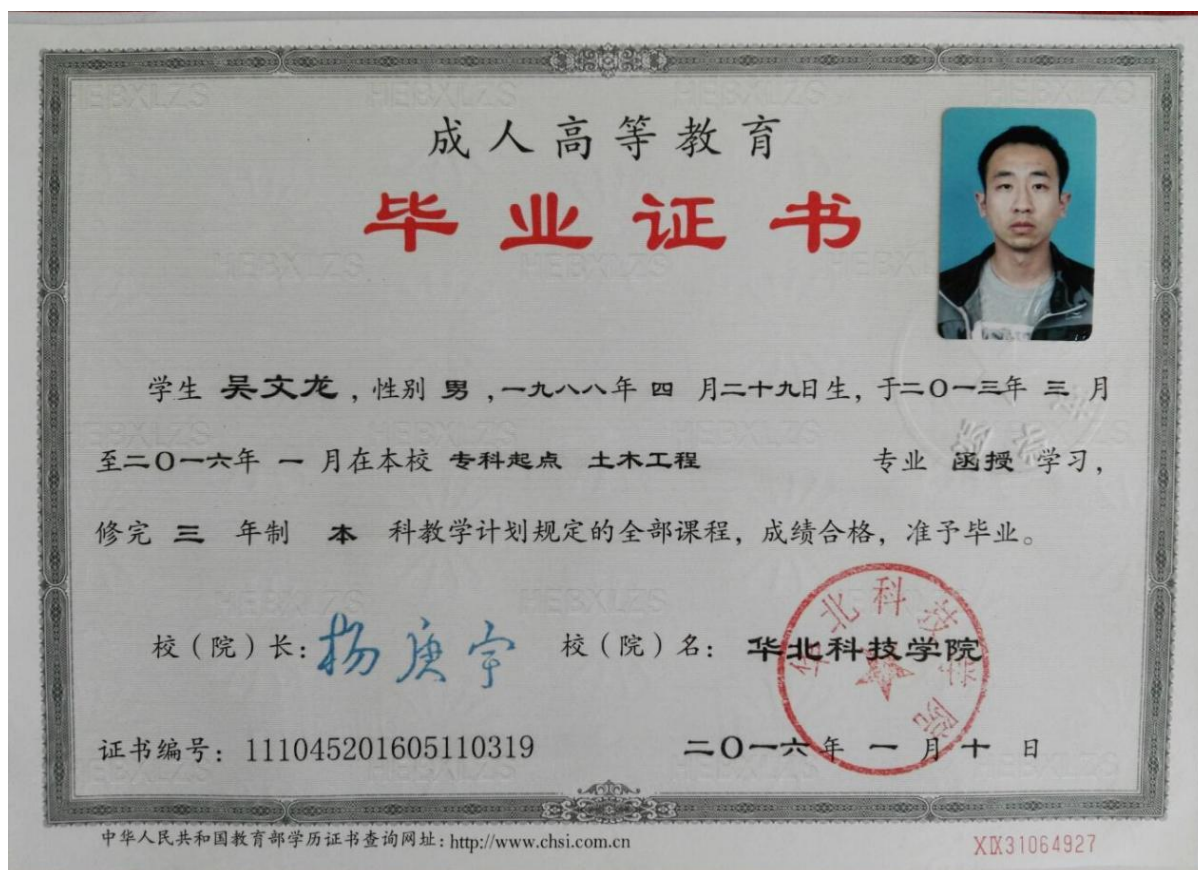 成人高等教育
毕业证书
学生 吴文龙 ，性别 男 ，一九八八年 四 月二十九日生，于二〇一三年 三 月
至二〇一六年 一 月在本校 专科起点 土木工程 专业 函授 学习，
修完 三 年制 本 科教学计划规定的全部课程，成绩合格，准予毕业。
校（院）长：杨庚宇 校（院）名：华北科技学院
华北科技学院
证书编号：111045201605110319 二〇一六年 一 月 十 日
中华人民共和国教育部学历证书查询网址：http://www.chsi.com.cn
XIX31064927
HEBXLZS